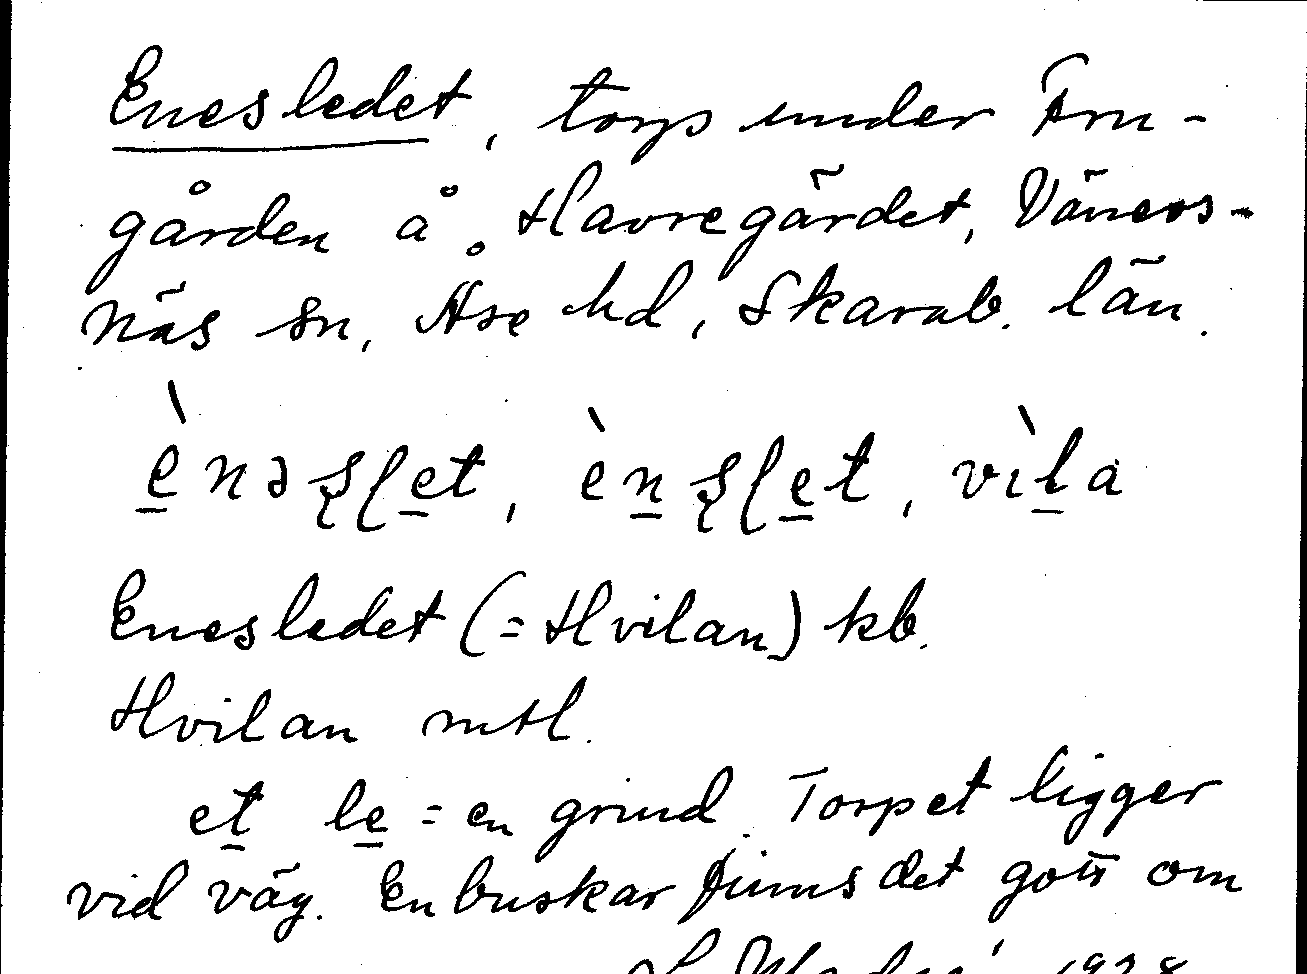 Enesledet, torp under Fru-
gården å Havregärdet, Väners-
näs sn, Åse hd, Skarab. län.
è̱nəʂɭe̱t, èṉʂɭe̱t, vìḻa
Enesledet (= Hvilan) kb.
Hvilan mtl.
eṯ le̱ = en grind. Torpet ligger
vid väg. Enbuskar finns det gott om
1928